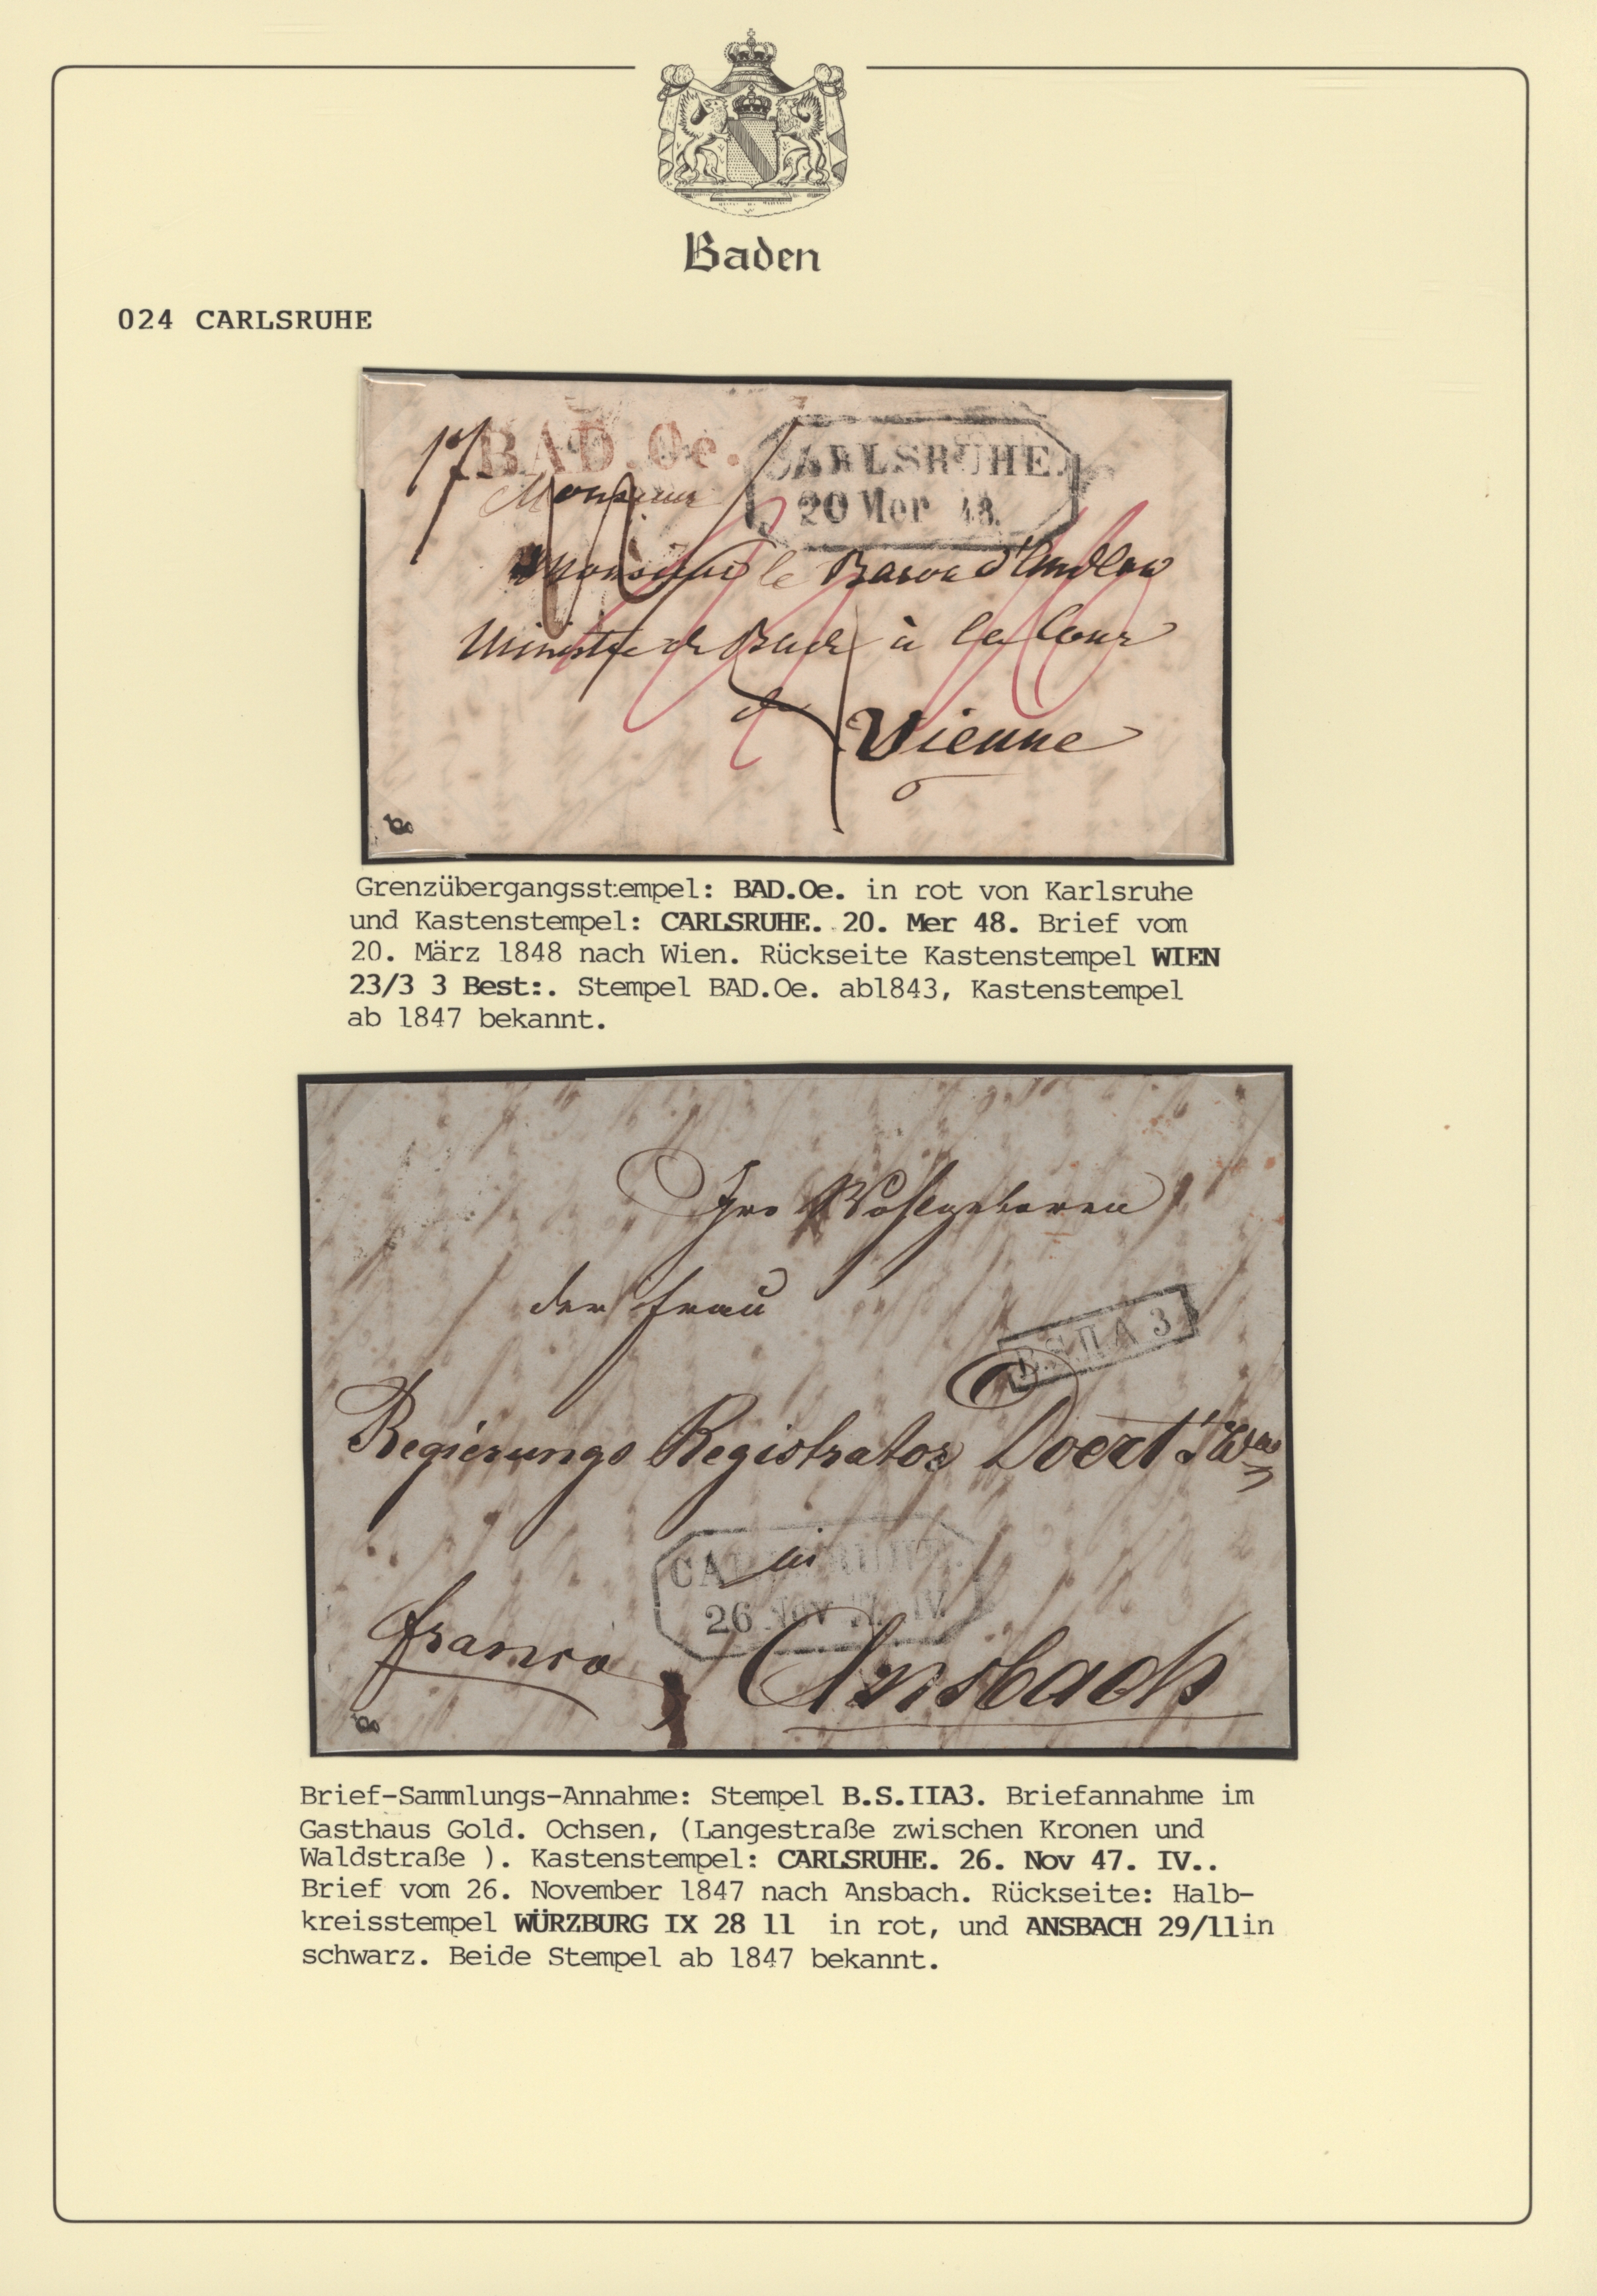 Baden
024 CARLSRUHE
17 BAD.Oe. CARLSRUHE.
20 Mer 48.
Monsieur
Monsieur le Baron d'Andlaw
Ministre de Bade à la Cour
de
Vienne
Grenzübergangsstempel: BAD.Oe. in rot von Karlsruhe
und Kastenstempel: CARLSRUHE. 20. Mer 48. Brief vom
20. März 1848 nach Wien. Rückseite Kastenstempel WIEN
23/3 3 Best:. Stempel BAD.Oe. ab1843, Kastenstempel
ab 1847 bekannt.
Iro Wohlgeboren
der Frau
B.S.II A 3
Regierungs Registrator Doerl
in
CARLSRUHE.
26 Nov 47. IV.
franco
Ansbach
Brief-Sammlungs-Annahme: Stempel B.S.IIA3. Briefannahme im
Gasthaus Gold. Ochsen, (Langestraße zwischen Kronen und
Waldstraße ). Kastenstempel: CARLSRUHE. 26. Nov 47. IV..
Brief vom 26. November 1847 nach Ansbach. Rückseite: Halb-
kreisstempel WÜRZBURG IX 28 11 in rot, und ANSBACH 29/11in
schwarz. Beide Stempel ab 1847 bekannt.